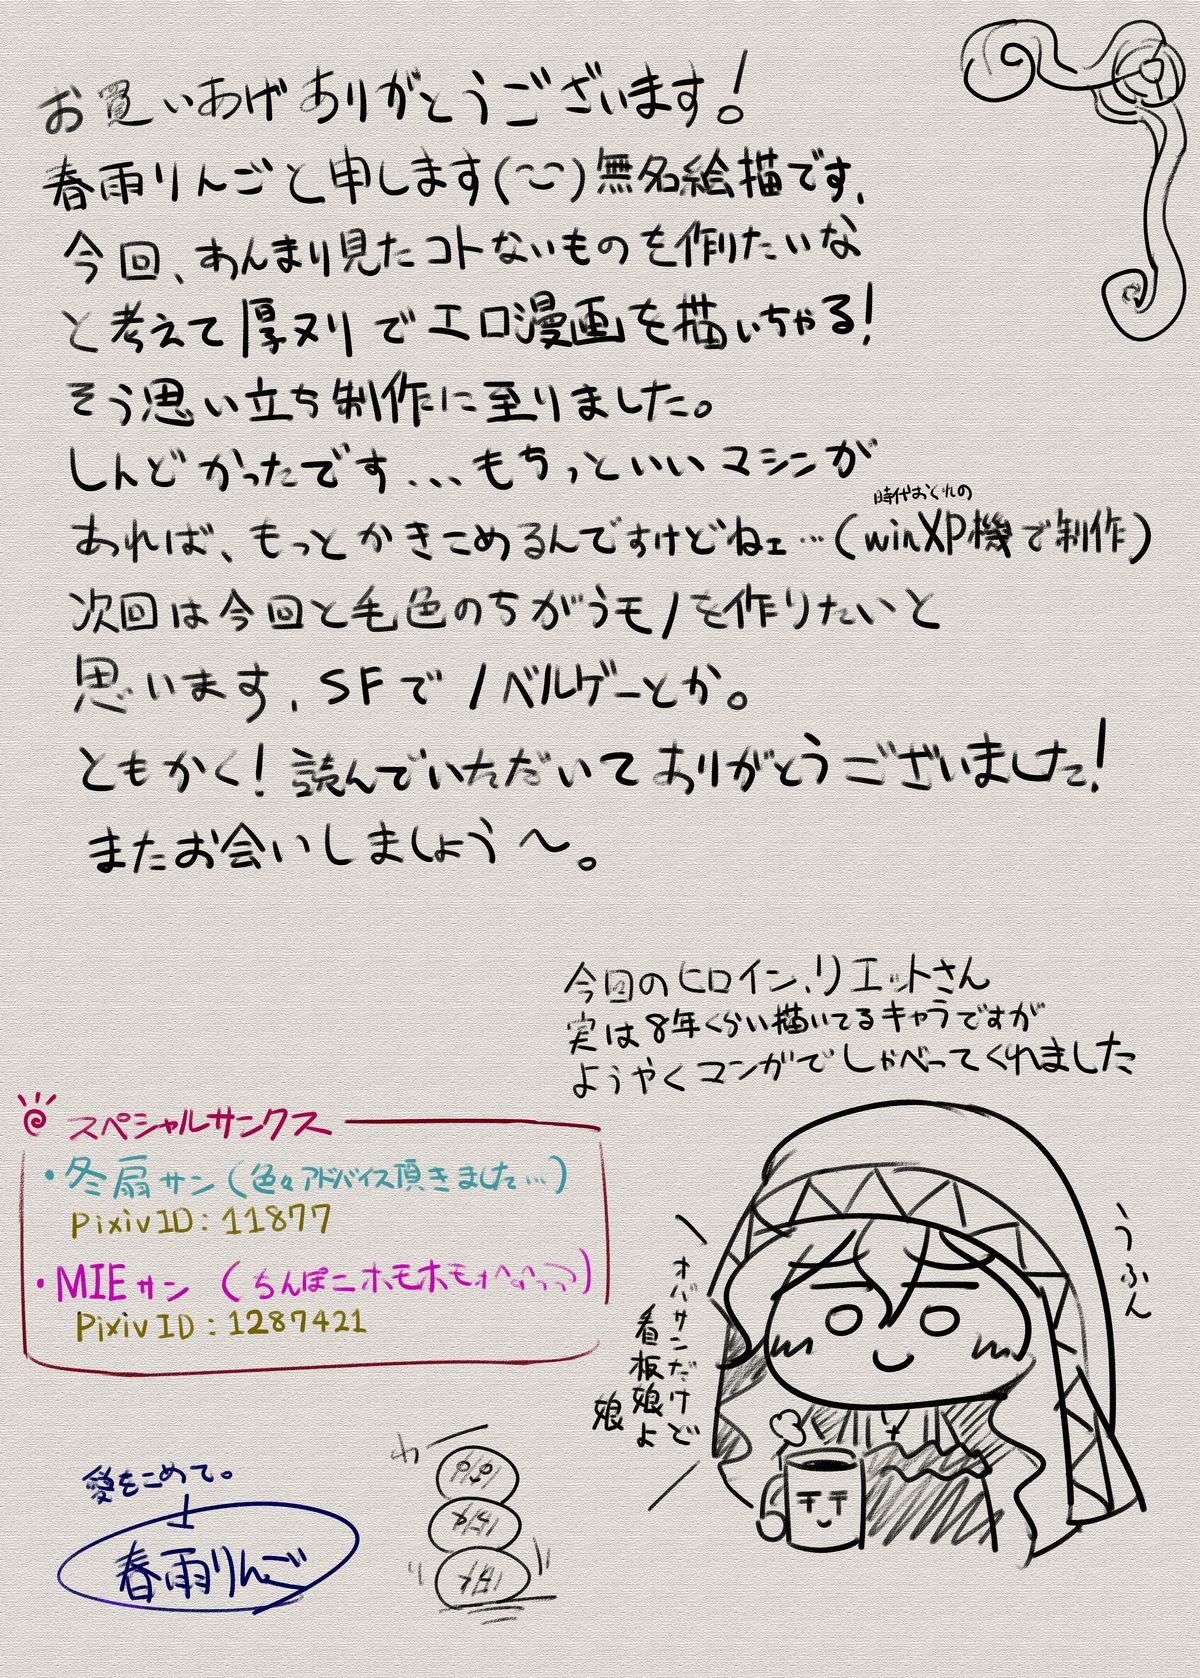 お買いあげありがとうございます!
春雨りんごと申します(~~)無名絵描です、
今回、あんまり見たコトないものを作りたいな
と考えて厚ヌリでエロ漫画を描いちゃる!
そう思い立ち制作に至りました。
しんどかったです、、、もちっといいマシンが
時代おくれの
あれば、もっとかきこめるんですけどねェ…(winXP機で制作)
次回は今回と毛色のちがうモノを作りたいと
思います、SFでノベルゲーとか。
ともかく!読んでいただいてありがとうございました!
またお会いしましょう〜。
今回のヒロイン、リエットさん
実は8年くらい描いてるキャラですが
ようやくマンガでしゃべってくれました
スペシャルサンクス
・冬扇サン(色々アドバイス頂きました…)
pixivID:11877
・MIEサン(ちんぽニホモホモォ
PixivID:1287421
うふん
オバサンだけど
看板娘よ
娘
愛をこめて。
春雨りんご